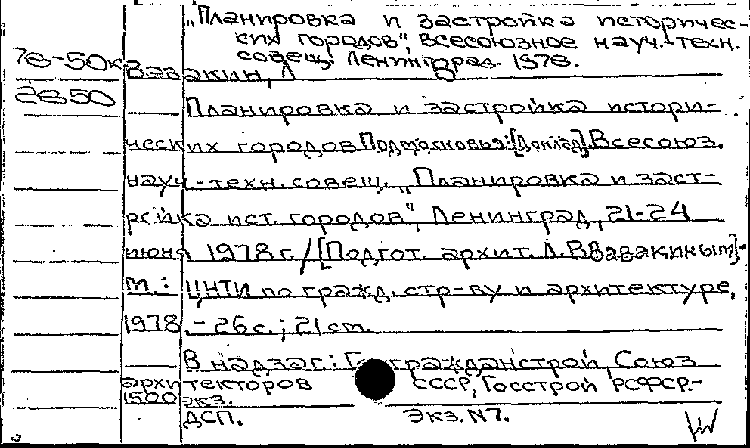 „Планировка и застройка историчес-
ких городов", Всесоюзное науч.-техн.
совещ. Ленинград. 1978.
78-50к
Вавакин, Л
2650
Планировка и застройка истори-
ческих городов Подмосковья: [Доклад] Всесоюз.
науч.-техн. совещ. „Планировка и заст-
ройка ист. городов", Ленинград, 21-24
июня 1978 г. / [Подгот. архит. Л.В. Вавакиным]-
М.: ЦНТИ по гражд. стр-ву и архитектуре,
1978. - 26 с.; 21 см.
В надзаг.: Госгражданстрой, Союз
архитекторов СССР, Госстрой РСФСР.-
1500 экз.
ДСП. Экз. N7.